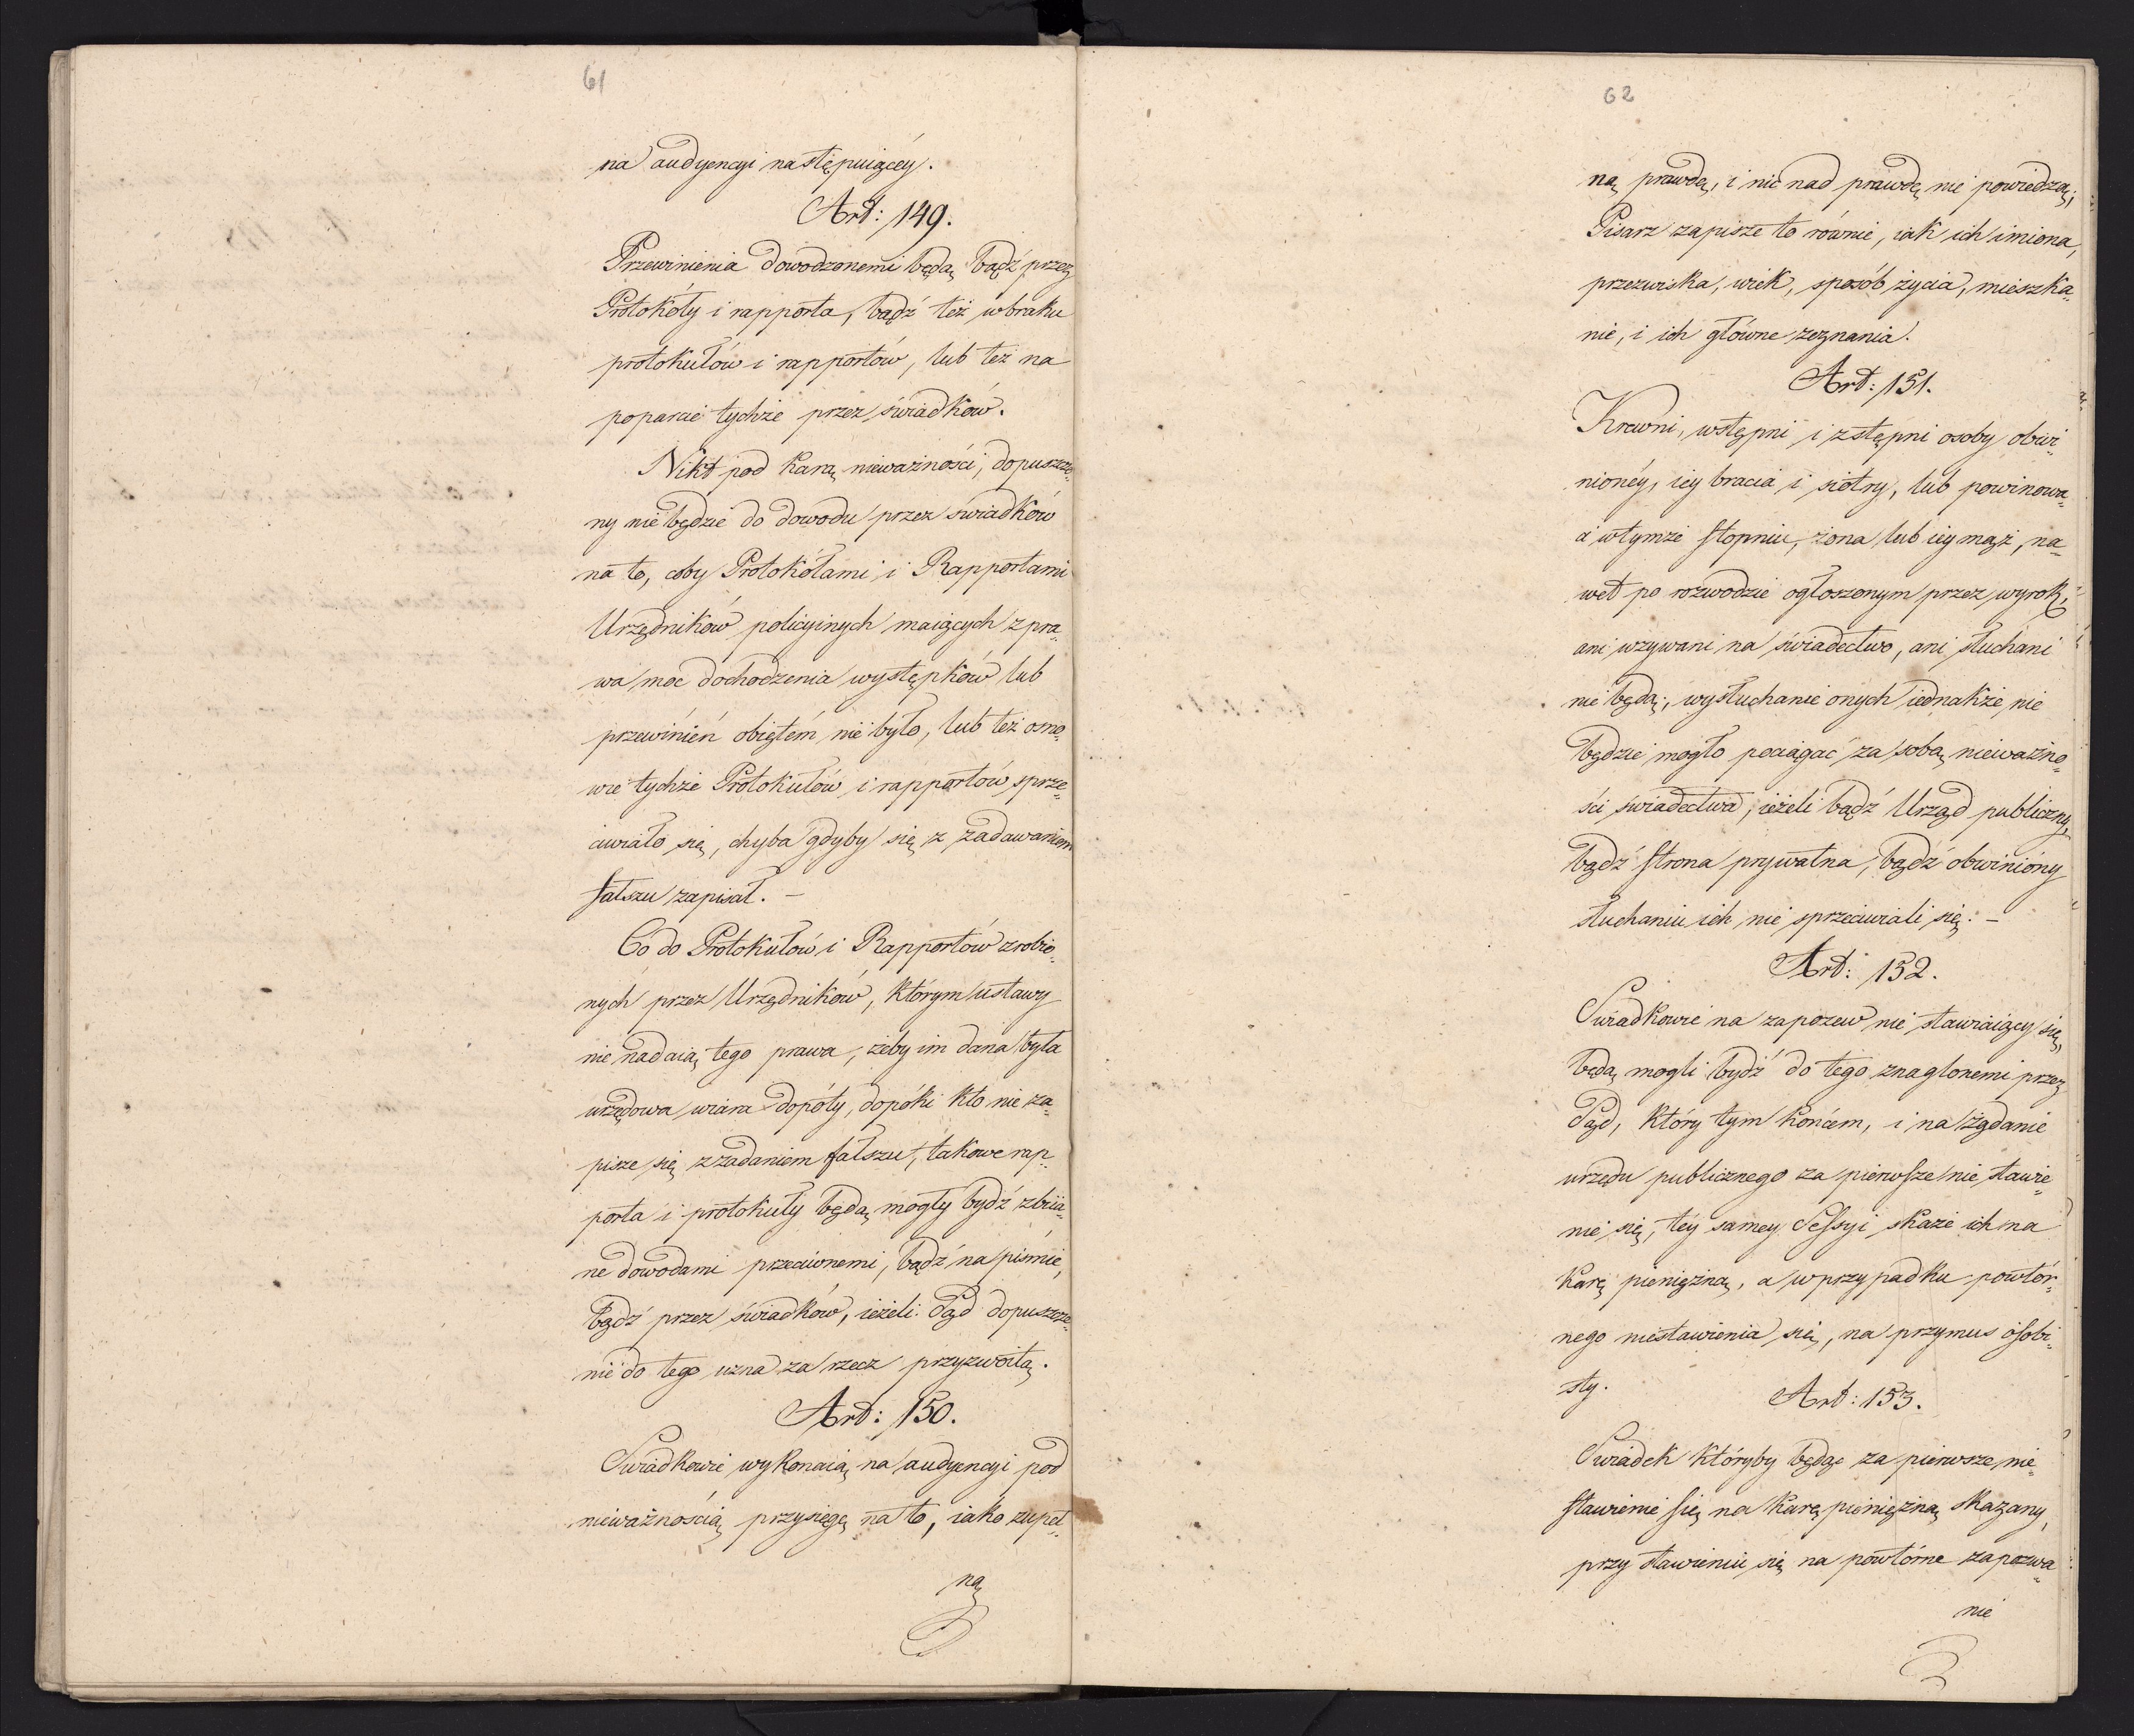 61
na audyencyi następuiącéy.
Art: 149.
Przewinienia dowodzonemi będą bądź przez
Protokóły i rapporta, bądź też w braku
protokułów i rapportów, lub też na
poparcie tychże przez świadków.
Nikt pod karą nieważności, dopuszczo„
ny nie będzie do dowodu przez świadków
na to, coby Protokółami i Rapportami
Urzędników policyinych maiących z pra„
wa moc dochodzenia występków lub
przewinień obiętém nie było, lub też osno„
wie tychże Protokułów i rapportów sprze„
ciwiało się, chyba gdyby się z zadawaniem
fałszu zapisał. –
Co do Protokułów i Rapportów zrobio„
nych przez Urzędników, którym ustawy
nie nadaią tego prawa, żeby im dana była
urzędowa wiara dopóty, dopóki kto nie za„
pisze się z zadaniem fałszu, takowe rap„
porta i protokuły będą mogły bydź zbiia„
ne dowodami przeciwnemi, bądź na piśmie,
bądź przez świadków, ieżeli Sąd dopuszcze„
nie do tego uzna za rzecz przyzwoitą.
Art: 150.
Swiadkowie wykonaią na audyencyi pod
nieważnością przysięgę na to, iako zupeł„
ną
62
ną prawdę, i nic nad prawdę nie powiedzą;
Pisarz zapisze to równie, iak ich imiona,
przezwiska, wiek, sposób życia, mieszka„
nie, i ich główne zeznania.
Art: 151.
Krewni, wstępni i zstępni osoby obwi„
nionéy, iey bracia i siostry, lub powinowa„
ci w tymże stopniu, żona lub iey mąż, na„
wet po rozwodzie ogłoszonym przez wyrok,
ani wzywani na świadectwo, ani słuchani
nie będą; wysłuchanie onych iednakże, nie
będzie mogło pociągać za sobą nieważno„
ści świadectwa, ieżeli bądź Urząd publiczny,
bądź strona prywatna, bądź obwiniony
słuchaniu ich nie sprzeciwiali się. –
Art: 152.
Swiadkowie na zapozew nie stawiaiący się,
będą mogli bydź do tego znaglonemi przez
Sąd, który tym końcem, i na żądanie
urzędu publicznego za pierwsze nie stawie„
nie się, téy samey Sessyi skaże ich na
karę pieniężną, a w przypadku powtór„
nego niestawienia się, na przymus osobi„
sty.
Art: 153.
Swiadek któryby będąc za pierwsze nie„
stawienie się na karę pieniężną skazany,
przy stawieniu się na powtórne zapozwa„
nie